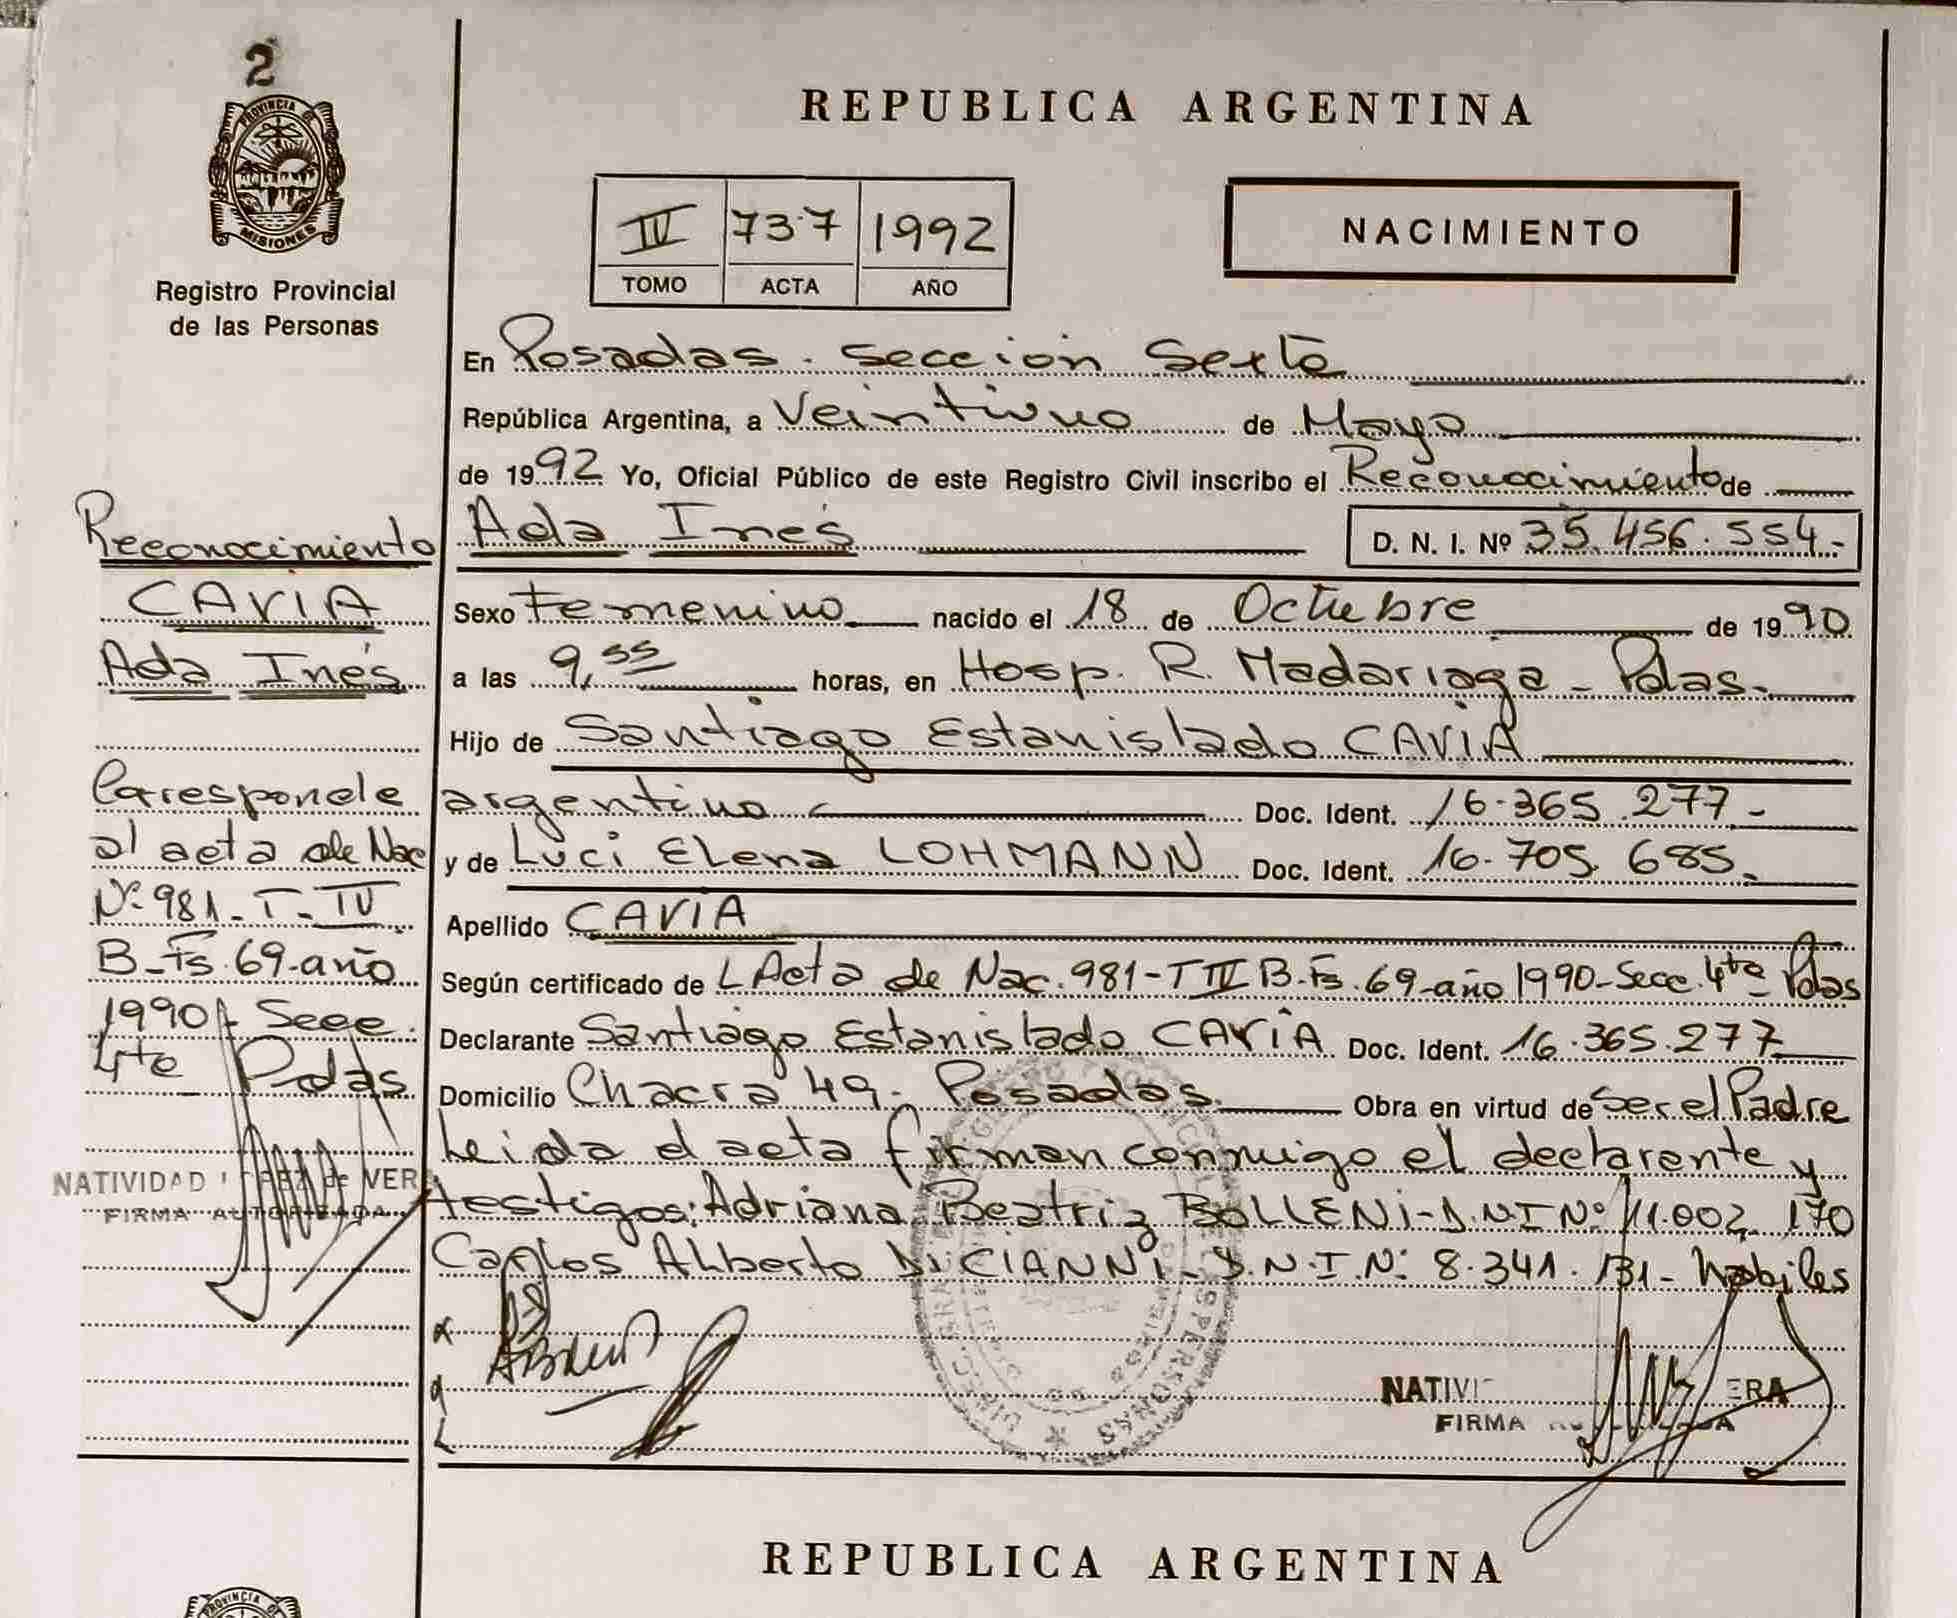 2
PROVINCIA DE
MISIONES
Registro Provincial
de las Personas
REPUBLICA ARGENTINA
IV 737 1992
TOMO ACTA AÑO
NACIMIENTO
En Posadas. Seccion Sexta
República Argentina, a Veintiuno de Mayo
de 1992 Yo, Oficial Público de este Registro Civil inscribo el Reconocimiento de
Ada Inés D. N. I. Nº 35.456.554.-
Sexo Femenino nacido el 18 de Octubre de 1990
a las 9,55 horas, en Hosp. R. Madariaga - Pdas.
Hijo de Santiago Estanislado CAVIA
argentino Doc. Ident. 16.365.277-
y de Luci Elena LOHMANN Doc. Ident. 16.705.685.
Apellido CAVIA
Según certificado de L Acta de Nac. 981-T IV B-Fs.69-año 1990-Secc. 4ta Pdas
Declarante Santiago Estanislado CAVIA Doc. Ident. 16.365.277
Domicilio Chacra 49- Posadas. Obra en virtud de Ser el Padre
Leida el acta firman conmigo el declarante y
testigos: Adriana Beatriz BOLLENI-D.N.I Nº 11.002.170
Carlos Alberto DI CIANNI-D.N.I.Nº 8.341.131- habiles
NATIVI ERA
FIRMA
Reconocimiento
CAVIA
Ada Inés
Coresponde
al acta de Nac
Nº 981-T-IV
B-Fs.69-año
1990- Secc.
4ta Pdas
NATIVIDAD de VER
FIRMA AUTORIZADA
REPUBLICA ARGENTINA
PROVINCIA DE